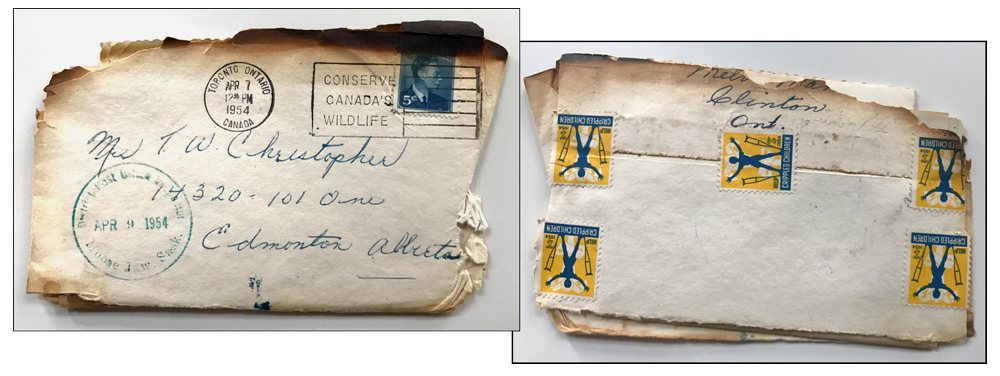 TORONTO ONTARIO
APR 7
PM
1954
CANADA
CONSERVE
CANADA'S
WILDLIFE
5
Mrs T. W. Christopher
320 - 101 One
Edmonton Alberta
District Post Office
APR 9 1954
Moose Jaw, Sask.
Clinton
Ont.
CRIPPLED CHILDREN
HELP
1954
CRIPPLED CHILDREN
HELP
CRIPPLED CHILDREN
1954
CRIPPLED CHILDREN
HELP
CRIPPLED CHILDREN
HELP